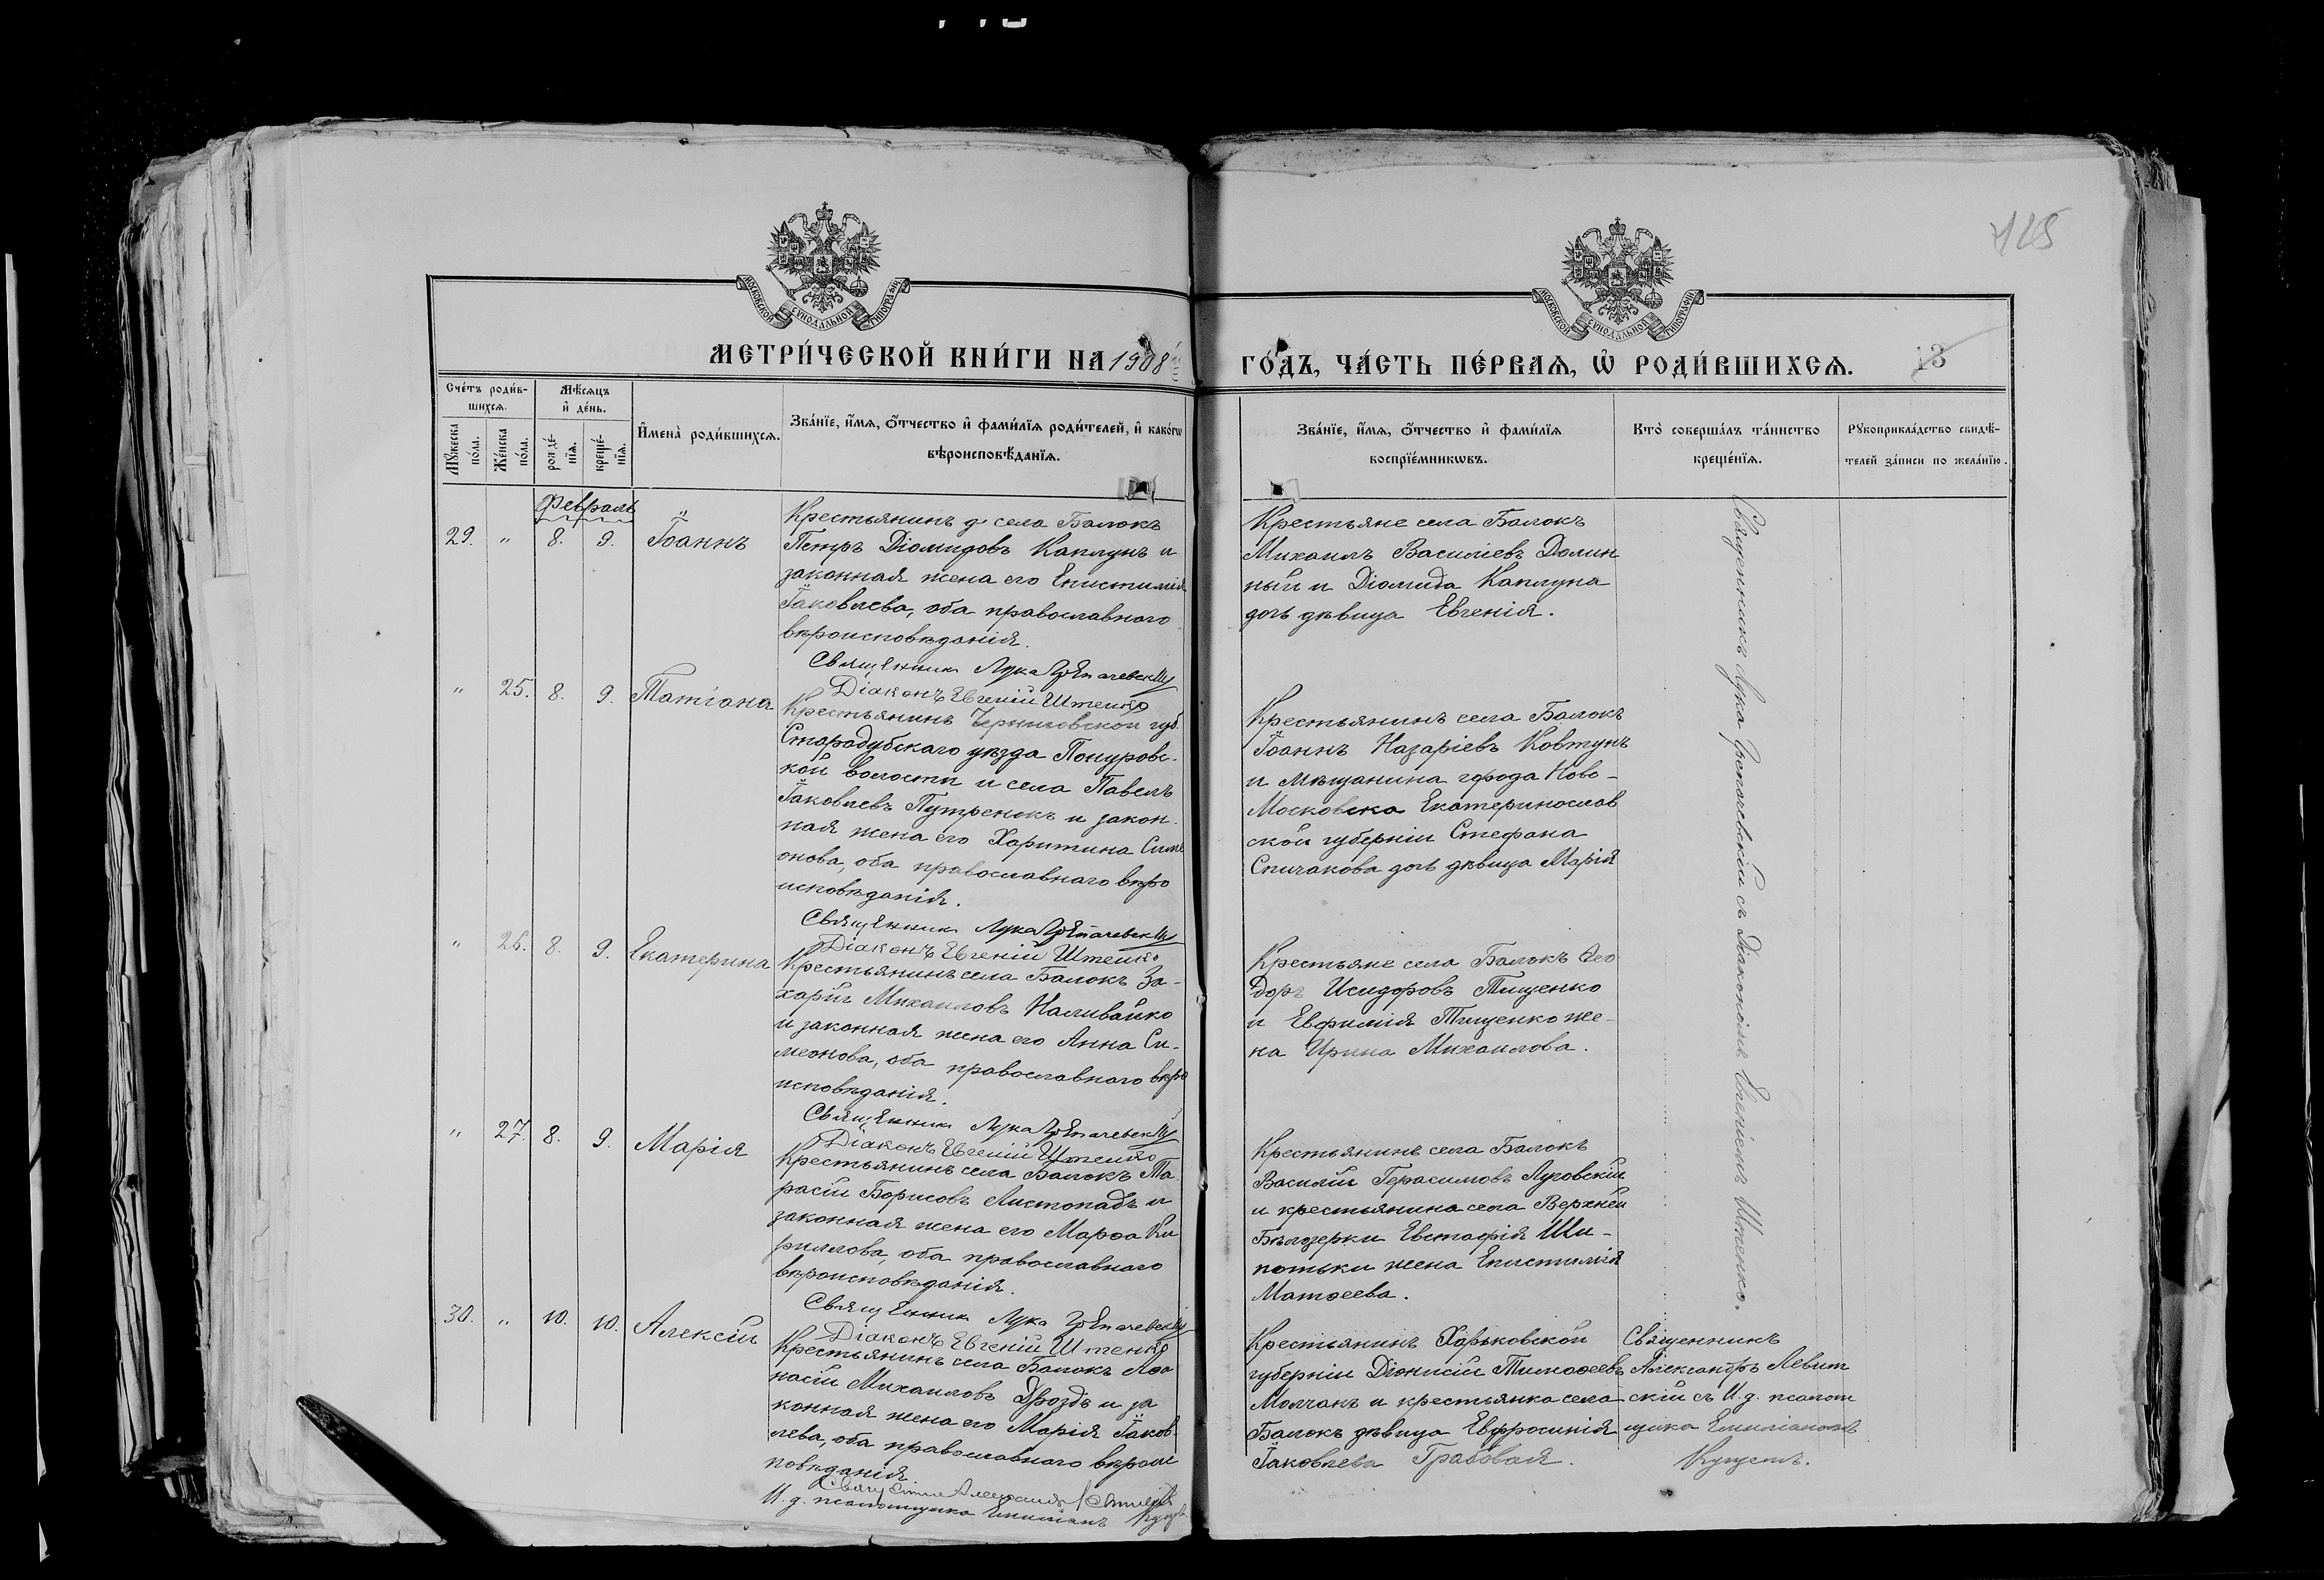 125
МОСКОВСКОЙ СУНОДАЛЬНОЙ ТИПОГРАФІИ
МОСКОВСКОЙ СУНОДАЛЬНОЙ ТИПОГРАФІИ
МЕТРИ́ЧЕСКОЙ КНИ́ГИ НА 1908
ГО́ДЪ, ЧА́СТЬ ПЕ́РВАѦ, Ѡ҆ РОДИ́ВШИХСѦ.
13
Сче́тъ роди́в-
шихсѧ.
Мꙋ́жеска
по́ла.
Же́нска
по́ла.
Мѣ́сѧцъ
и҆ де́нь.
рожде́-
нїѧ.
креще́-
нїѧ.
И҆мена̀ роди́вшихсѧ.
Зва́нїе, и҆́мѧ, ѻ҆́тчество и҆ фами́лїѧ роди́телей, и҆ како́гѡ
вѣроисповѣ́данїѧ.
Зва́нїе, и҆́мѧ, ѻ҆́тчество и҆ фами́лїѧ
воспрїе́мникѡвъ.
Кто̀ соверша́лъ та́инство
креще́нїѧ.
Рꙋкоприкла́дство свидѣ́-
телей за́писи по жела́нїю.
Февраль
29. " 8. 9. Іоаннъ
Крестьянинъ д села Балокъ
Петръ Діомидовъ Каплунъ и
законная жена его Епистимія
Іаковлева, оба православнаго
вѣроисповѣданія.
Священник Лука
Діаконъ Евгеній Штенко
Крестьяне села Балокъ
Михаилъ Василіевъ Долин
ный и Діомида Каплуна
дочь дѣвица Евгенія.
" 25. 8. 9. Татіана
Крестьянинъ Черниговской губ.
Стародубскаго уѣзда Понуровс-
кой волости и села Павелъ
Іаковлевъ Путренокъ и закон-
ная жена его Харитина Симе
онова, оба православнаго вѣро
исповѣданія.
Священник Лука
Діаконъ Евгеній Штенко
Крестьянинъ села Балокъ
Іоаннъ Назаріевъ Ковтунъ
и мѣщанина города Ново-
Московска Екатеринослав
ской губерніи Стефана
Спичакова дочь дѣвица Марія
" 26. 8. 9. Екатерина
Крестьянинъ села Балокъ За-
харій Михаиловъ Наливайко
и законная жена его Анна Си-
меонова, оба православнаго вѣро
исповѣданія.
Священник Лука
Діаконъ Евгеній Штенко
Крестьяне села Балокъ Ѳео
доръ Исидоровъ Тищенко
и Евфимія Тищенко же-
на Ирина Михаилова.
" 27. 8. 9. Марія
Крестьянинъ села Балокъ Та
расій Борисовъ Листопадъ и
законная жена его Марѳа Ки
риллова, оба православнаго
вѣроисповѣданія.
Священник Лука
Діаконъ Евгеній Штенко
Крестьянинъ села Балокъ
Василій Герасимовъ Луговскій
и крестьянина села Верхней
Бѣлозерки Евстафія Ши-
потьки жена Епистимія
Матѳеева.
Священникъ Лука съ Діакономъ Евгеніемъ Штенко.
30. " 10. 10. Алексій
Крестьянинъ села Балокъ Аѳа
насій Михаиловъ Дроздъ и за
конная жена его Марія Іаков-
лева, оба православнаго вѣроис
повѣданія.
И. д. псаломщика Емиліанъ
Крестьянинъ Харьковской
губерніи Діонисій Тимоѳеевъ
Молчакъ и крестьянка села
Балокъ дѣвица Евфросинія
Іаковлева Грабовая.
Священникъ
Александръ Левит
скій съ И. д. псалом
щика Емиліаномъ